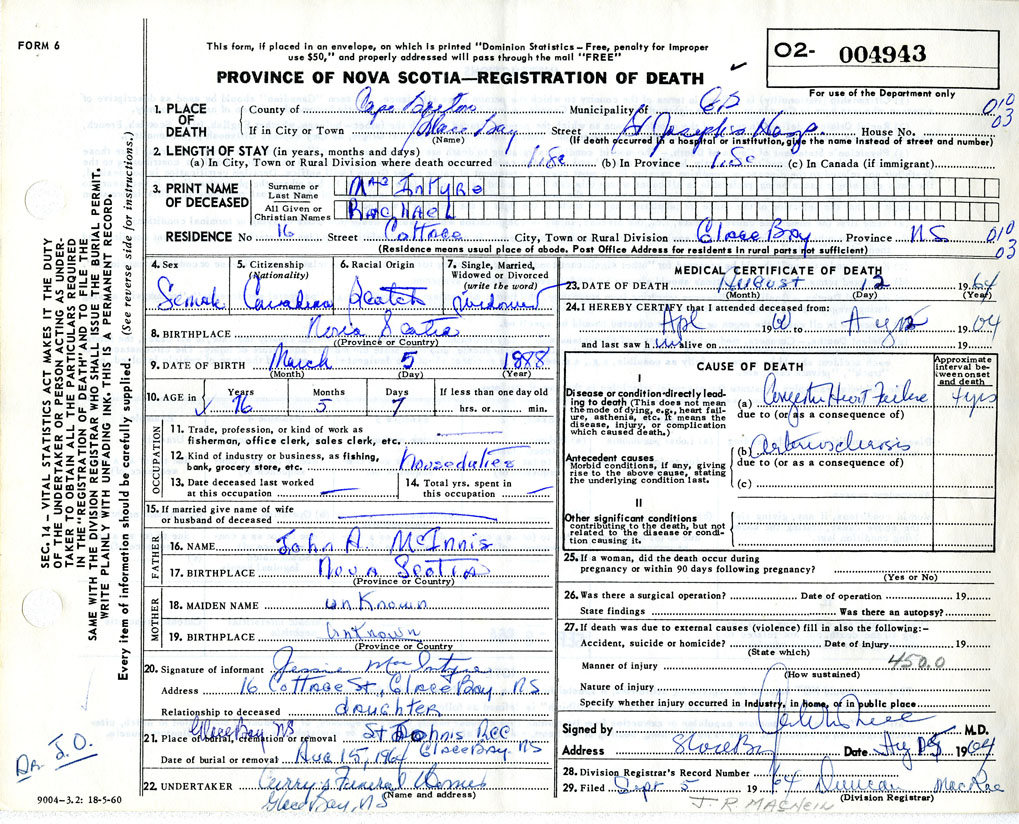 FORM 6
This form, if placed in an envelope, on which is printed "Dominion Statistics – Free, penalty for improper
use $50," and properly addressed will pass through the mail "FREE"
PROVINCE OF NOVA SCOTIA—REGISTRATION OF DEATH
O2- 004943
For use of the Department only
1. PLACE OF DEATH
County of Cape Breton Municipality of CB
010
03
If in City or Town Glace Bay Street St Joseph's Hosp. House No.
(Name) (If death occurred in a hospital or institution, give the name instead of street and number)
2. LENGTH OF STAY (in years, months and days)
(a) In City, Town or Rural Division where death occurred (b) In Province (c) In Canada (if immigrant)
3. PRINT NAME OF DECEASED
Surname or Last Name MacIntyre
All Given or Christian Names RACHAEL
RESIDENCE No 16 Street Cottage City, Town or Rural Division Glace Bay Province NS
010
03
(Residence means usual place of abode. Post Office Address for residents in rural parts not sufficient)
4. Sex Female
5. Citizenship (Nationality) Canadian
6. Racial Origin Scotch
7. Single, Married, Widowed or Divorced (write the word) widowed
8. BIRTHPLACE Nova Scotia
(Province or Country)
9. DATE OF BIRTH March 5 1888
(Month) (Day) (Year)
10. AGE in Years 76 Months 5 Days 7 If less than one day old
hrs. or min.
OCCUPATION
11. Trade, profession, or kind of work as
fisherman, office clerk, sales clerk, etc.
12. Kind of industry or business, as fishing,
bank, grocery store, etc. Houseduties
13. Date deceased last worked
at this occupation
14. Total yrs. spent in
this occupation
15. If married give name of wife
or husband of deceased
FATHER
16. NAME John A. McInnis
17. BIRTHPLACE Nova Scotia
(Province or Country)
MOTHER
18. MAIDEN NAME unKnown
19. BIRTHPLACE unKnown
(Province or Country)
20. Signature of informant Jessie MacIntyre
Address 16 Cottage St, Glace Bay, NS
Relationship to deceased daughter
21. Place of burial, cremation or removal Glace Bay NS St Johns
Glace Bay NS
Date of burial or removal Aug 15, 1964
22. UNDERTAKER Curry's Funeral Homes
(Name and address)
Glace Bay, NS
9004-3.2: 18-5-60
MEDICAL CERTIFICATE OF DEATH
23. DATE OF DEATH August 12 1964
(Month) (Day) (Year)
24. I HEREBY CERTIFY that I attended deceased from:
Apl 1960 to 1964
and last saw h alive on 19
CAUSE OF DEATH
Approximate interval between onset and death
I
Disease or condition directly leading to death (This does not mean the mode of dying, e.g., heart failure, asthenia, etc. It means the disease, injury, or complication which caused death.)
(a) Congestive Heart Failure 4 yrs
due to (or as a consequence of)
Antecedent causes
Morbid conditions, if any, giving rise to the above cause, stating the underlying condition last.
(b) arteriosclerosis
due to (or as a consequence of)
(c)
II
Other significant conditions
contributing to the death, but not related to the disease or condition causing it.
25. If a woman, did the death occur during
pregnancy or within 90 days following pregnancy?
(Yes or No)
26. Was there a surgical operation? Date of operation 19
State findings Was there an autopsy?
27. If death was due to external causes (violence) fill in also the following:–
Accident, suicide or homicide? Date of injury 19
(State which)
450.0
Manner of injury
(How sustained)
Nature of injury
Specify whether injury occurred in Industry, in home, or in public place
Signed by M.D.
Address Glace Bay Date 1964
28. Division Registrar's Record Number
29. Filed Sept 5 1964 Duncan MacRae
(Division Registrar)
J. R. MACNEIL
SEC. 14 – VITAL STATISTICS ACT MAKES IT THE DUTY
OF THE UNDERTAKER OR PERSON ACTING AS UNDER-
TAKER TO OBTAIN ALL THE PARTICULARS REQUIRED
IN THE "REGISTRATION OF DEATH" AND TO FILE THE
SAME WITH THE DIVISION REGISTRAR WHO SHALL ISSUE THE BURIAL PERMIT.
WRITE PLAINLY WITH UNFADING INK. THIS IS A PERMANENT RECORD.
Every item of information should be carefully supplied. (See reverse side for instructions.)
Dr. J.O.